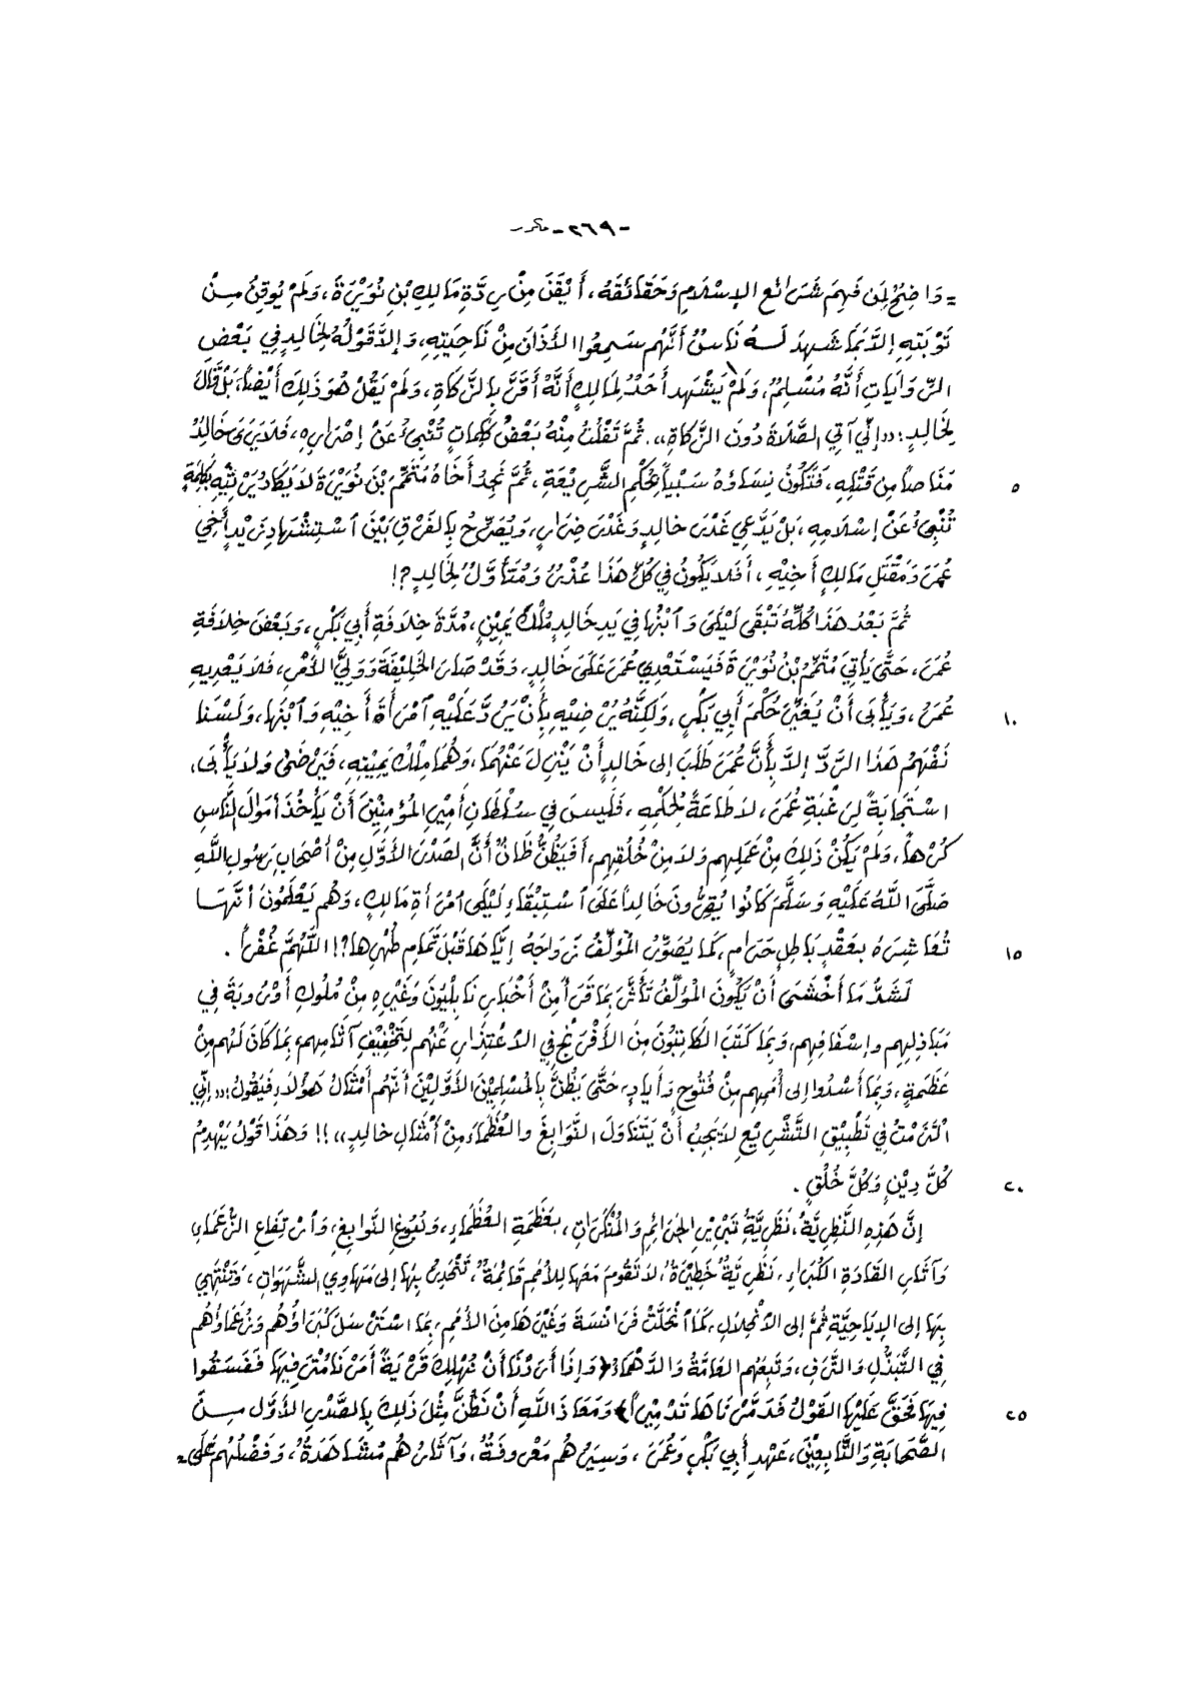 -٢٦٩- مكرر
= وَاضِحٌ لِمَن فَهِمَ شَرَائِعَ الإِسْلَامِ وَحَقَائِقَهُ، أَيْقَنَ مِنْ رِدَّةِ مَالِكِ بْنِ نُوَيْرَةَ، وَلَمْ يُوقِنْ مِنْ
تَوْبَتِهِ إلَّا بِمَا شَهِدَ لَهُ نَاسٌ أَنَّهُم سَمِعُوا الأَذَانَ مِنْ نَاحِيَتِهِ، وَإلَّا قَوْلُهُ لِخَالِدٍ فِي بَعْضِ
الرِّوَايَاتِ أَنَّهُ مُسْلِمٌ، وَلَمْ يَشْهَد أَحَدٌ لِمَالِكٍ أَنَّهُ أَقَرَّ بِالزَّكَاةِ، وَلَمْ يَقُلْ هُوَ ذَلِكَ أَيْضاً، بَلْ قَالَ
لِخَالِدٍ: «إنِّي آتِي الصَّلَاةَ دُونَ الزَّكَاةِ». ثُمَّ تَفْلُتُ مِنْهُ بَعْضُ كَلِمَاتٍ تُنْبِئُ عَنْ إصْرَارِهِ، فَلَا يَرَى خَالِدٌ
مَنَاصاً مِن قَتْلِهِ، فَتَكُونُ نِسَاؤُهُ سَبْياً بِحُكْمِ الشَّرِيْعَةِ، ثُمَّ نَجِدُ أَخَاهُ مُتَمِّمَ بْنَ نُوَيْرَةَ لَا يَكَادُ يَرْثِيْهِ بِكَلِمَةٍ ٥
تُنْبِئُ عَنْ إسْلَامِهِ، بَلْ يَدَّعِي غَدْرَ خالِدٍ وَغَدْرَ ضِرَارٍ، وَيُصَرِّحُ بِالفَرْقِ بَيْنَ ٱسْتِشْهَادِ زَيْدٍ أَخِي
عُمَرَ وَمَقْتَلِ مَالِكٍ أَخِيْهِ، أَفَلَا يَكُونُ فِي كُلِّ هَذَا عُذْرٌ وَمُتَأَوَّلٌ لِخَالِدٍ؟!
ثُمَّ بَعْدُ هَذَا كُلِّهُ تَبْقَى لَيْلَى وَٱبْنُهَا فِي يَدِ خَالِدٍ مُلْكَ يَمِيْنٍ، مُدَّةَ خِلَافَةِ أَبِي بَكْرٍ، وَبَعْضَ خِلَافَةِ
عُمَرَ، حَتَّى يَأْتِيَ مُتَمِّمُ بْنُ نُوَيْرَةَ فَيَسْتَعْدِي عُمَرَ عَلَى خَالِدٍ، وَقَدْ صَارَ الخَلِيْفَةَ وَوَلِيَّ الأَمْرِ، فَلَا يُعْدِيهِ
عُمَرُ، وَيَأْبَى أَنْ يُغَيِّرَ حُكْمَ أَبِي بَكْرٍ، وَلَكِنَّهُ يُرْضِيْهِ بِأَنْ يَرُدَّ عَلَيْهِ ٱمْرَأَةَ أَخِيْهِ وَٱبْنَهَا، وَلَسْنَا ١٠
نَفْهَمُ هَذَا الرَّدَّ إلَّا بِأَنَّ عُمَرَ طَلَبَ إلى خَالِدٍ أَنْ يَنْزِلَ عَنْهُمَا، وَهُمَا مِلْكُ يَمِيْنِهِ، فَيَرْضَى وَلَا يَأْبَى،
اسْتِجَابَةً لِرَغْبَةِ عُمَرَ، لَا طَاعَةً لِحُكْمِهِ، فَلَيسَ فِي سُلْطَانِ أَمِيْرِ المُؤْمِنِيْنَ أَنْ يَأْخُذَ أَمْوَالَ النَّاسِ
كُرْهاً، وَلَمْ يَكُنْ ذَلِكَ مِنْ عَمَلِهِم وَلَا مِنْ خُلُقِهِم، أَفَيَظُنُّ ظَانٌّ أَنَّ الصَّدْرَ الأَوَّلَ مِنْ أَصْحَابِ رَسُولِ اللَّهِ
صَلَّى اللَّهُ عَلَيْهِ وَسَلَّمَ كَانُوا يُقِرُّونَ خَالِداً عَلَى ٱسْتِبْقَاءِ لَيْلَى ٱمْرَأَةِ مَالِكٍ، وَهُم يَعْلَمُونَ أَنَّهَا
تُعَاشِرَهُ بِعَقْدٍ بَاطِلٍ حَرَامٍ، كَمَا يُصَوِّرُ المُؤَلِّفُ زَوَاجَهُ إيَّاهَا قَبْلَ تَمَامِ طُهْرِهَا؟!! اللَّهُمَّ غُفْراً. ١٥
لَشَدَّ مَا أَخْشَى أَنْ يَكُونَ المُؤَلِّفُ تَأَثَّرَ بِمَا قَرَأَ مِنْ أَخْبَارِ نَابِلْيُونَ وَغَيْرِهِ مِنْ مُلُوكِ أَوْرُوبَةَ فِي
مَبَاذِلِهِم وإسْفَافِهِم، وَبِمَا كَتَبَ الكَاتِبُونَ مِنَ الأَفْرَنْجِ فِي الاعْتِذَارِ عَنْهُم لِتَخْفِيْفِ آثَامِهِم، بِمَا كَانَ لَهُم مِنْ
عَظَمَةٍ، وَبِمَا أَسْدَوا إلى أُمَمِهِم مِنْ فُتُوحٍ وَأَيَادٍ، حَتَّى يَظُنَّ بِالمُسْلِمِيْنَ الأَوَّلِيْنَ أَنَّهُم أَمْثَالُ هَؤُلَاءِ، فَيَقُولُ: «إنَّ
التَّزَمُّتَ فِي تَطْبِيْقِ التَّشْرِيْعِ لَا يَجِبُ أَنْ يَتَنَاوَلَ النَّوَابِغَ والعُظَمَاءَ مِنْ أَمْثَالِ خالِدٍ»!! وَهَذَا قَوْلٌ يَهْدِمُ
كُلَّ دِيْنٍ وَكُلَّ خُلُقٍ. ٢٠
إنَّ هَذِهِ النَّظَرِيَّةَ، نَظَرِيَّةُ تَبْرِيْرِ الجَرَائِمِ وَالمُنْكَرَاتِ، بِعَظَمَةِ العُظَمَاءِ، وَنُبُوغِ النَّوابِغِ، وَٱرْتِفَاعِ الزُّعَمَاءِ
وَآثَارِ القَادَةِ الكُبَرَاءِ، نَظَرِيَّةٌ خَطِيْرَةٌ، لَا تَقُومَ مَعَهَا لِلأُمَمِ قَائِمَةٌ، تَنْحَدِرُ بِهَا إلى مَهَاوِي الشَّهَوَاتِ، وَتَنْتَهِي
بِهَا إلى الإِبَاحِيَّةِ ثُمَّ إلى الانْحِلَالِ، كَمَا ٱنْحَلَّتْ فَرَانْسَةَ وَغَيْرُهَا مِنَ الأُمَمِ، بِمَا اسْتَرْسَلَ كُبَرَاؤُهُم وَزُعَمَاؤُهُم
فِي التَّبَذُّلِ وَالتَّرَفِ، وَتَبِعَهُم العَامَّةُ وَالدَّهْمَاءُ: ﴿وَإذَا أَرَدْنَا أَنْ نُهْلِكَ قَرْيَةً أَمَرْنَا مُتْرَفِيْهَا فَفَسَقُوا
فِيهَا فَحَقَّ عَلَيْهَا القَوْلُ فَدَمَّرْنَاهَا تَدْمِيْراً﴾ وَمَعَاذَ اللَّهِ أَنْ نَظُنَّ مِثْلَ ذَلِكَ بِالصَّدْرِ الأَوَّلِ مِنَ ٢٥
الصَّحَابَةِ وَالتَّابِعِيْنَ، عَهْدِ أَبِي بَكْرٍ وَعُمَرَ، وَسِيَرُهُم مَعْرُوفَةٌ، وَآثَارُهُم مُشَاهَدَةٌ، وَفَضْلُهُم عَلَى =